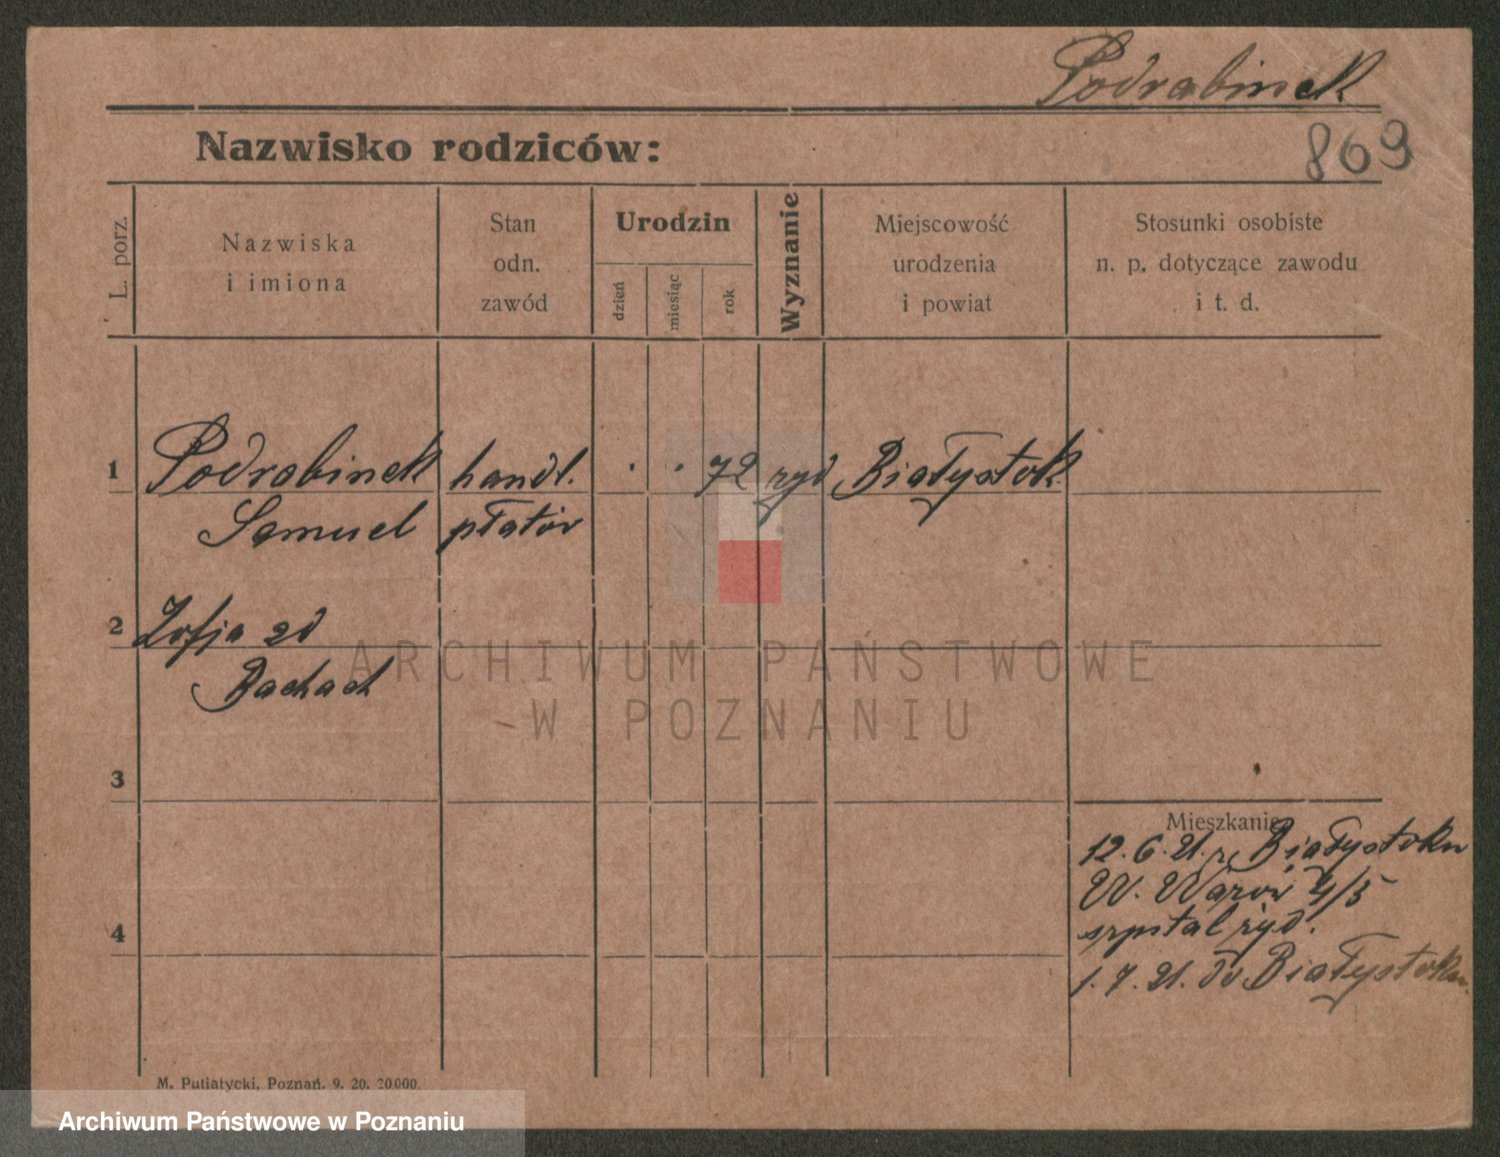 Podrabinek
869
Nazwisko rodziców:
L. porz.
Nazwiska
i imiona
Stan
odn.
zawód
Urodzin
dzień
miesiąc
rok
Wyznanie
Miejscowość
urodzenia
i powiat
Stosunki osobiste
n. p. dotyczące zawodu
i t. d.
1 Podrabinek handl. 72 żyd Białystok
Samuel płatów
2 Zofja zd
Bachach
3
4
Mieszkanie
12. 6. 21. z Białystoku
W. 4/5
szpital żyd.
1. 7. 21. do Białystoku
M. Putiatycki, Poznań. 9. 20. 20000.
ARCHIWUM PAŃSTWOWE
W POZNANIU
Archiwum Państwowe w Poznaniu